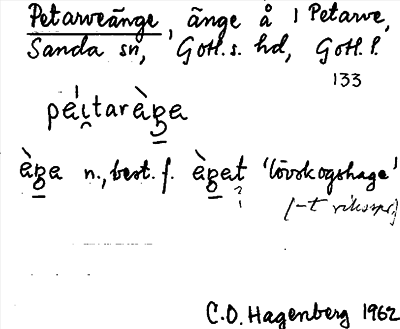 Petarveänge, änge å 1 Petarve,
Sanda sn, Gotl. s. hd, Gotl. l.
133
pa᷈ɩtaràŋa
àŋa n., best. f. àŋat 'lövskogshage'
?
(-t riksspr)
C.O. Hagenberg 1962